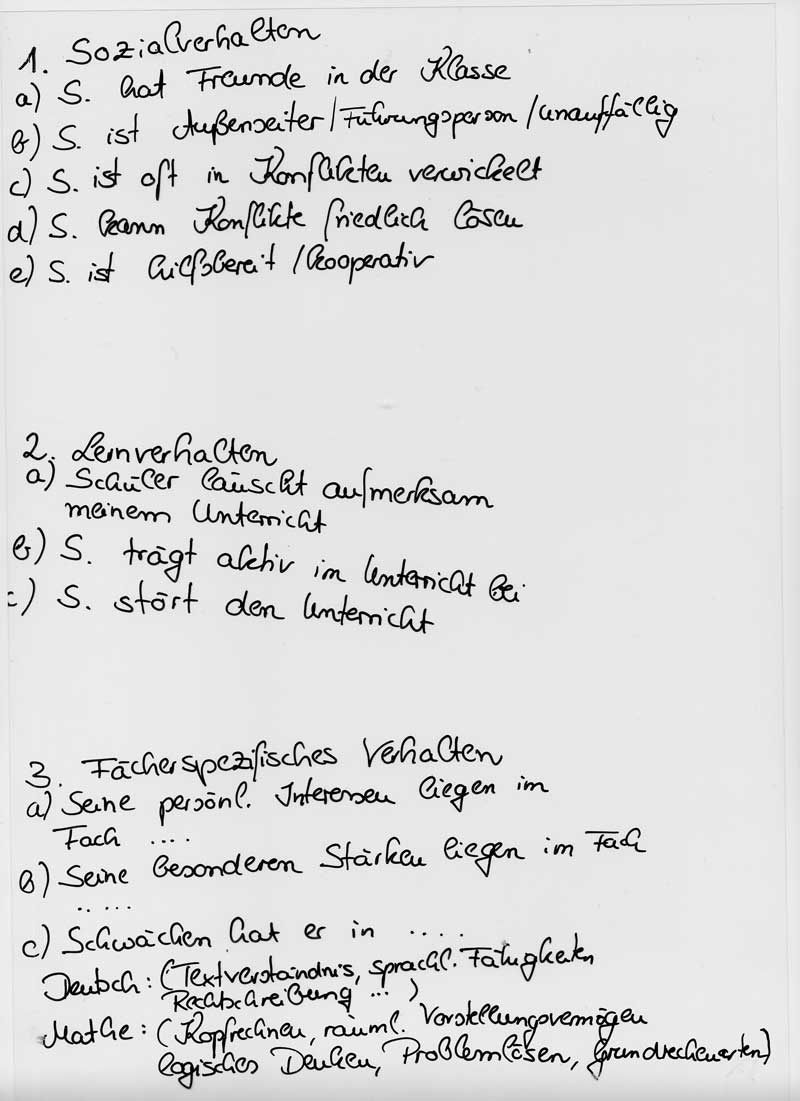 1. Sozialverhalten
a) S. hat Freunde in der Klasse
b) S. ist Außenseiter/Führungsperson/unauffällig
c) S. ist oft in Konflikten verwickelt
d) S. kann Konflikte friedlich lösen
e) S. ist hilfsbereit/kooperativ
2. Lernverhalten
a) Schüler lauscht aufmerksam
meinem Unterricht
b) S. trägt aktiv im Unterricht bei
c) S. stört den Unterricht
3. Fächerspezifisches Verhalten
a) Seine persönl. Interessen liegen im
Fach ....
b) Seine besonderen Stärken liegen im Fach
.. ...
c) Schwächen hat er in ....
Deutsch: (Textverständnis, sprachl. Fähigkeiten
Rechtschreibung ... )
Mathe: (Kopfrechnen, räuml. Vorstellungsvermögen
logisches Denken, Problemlösen, Grundrechenarten)